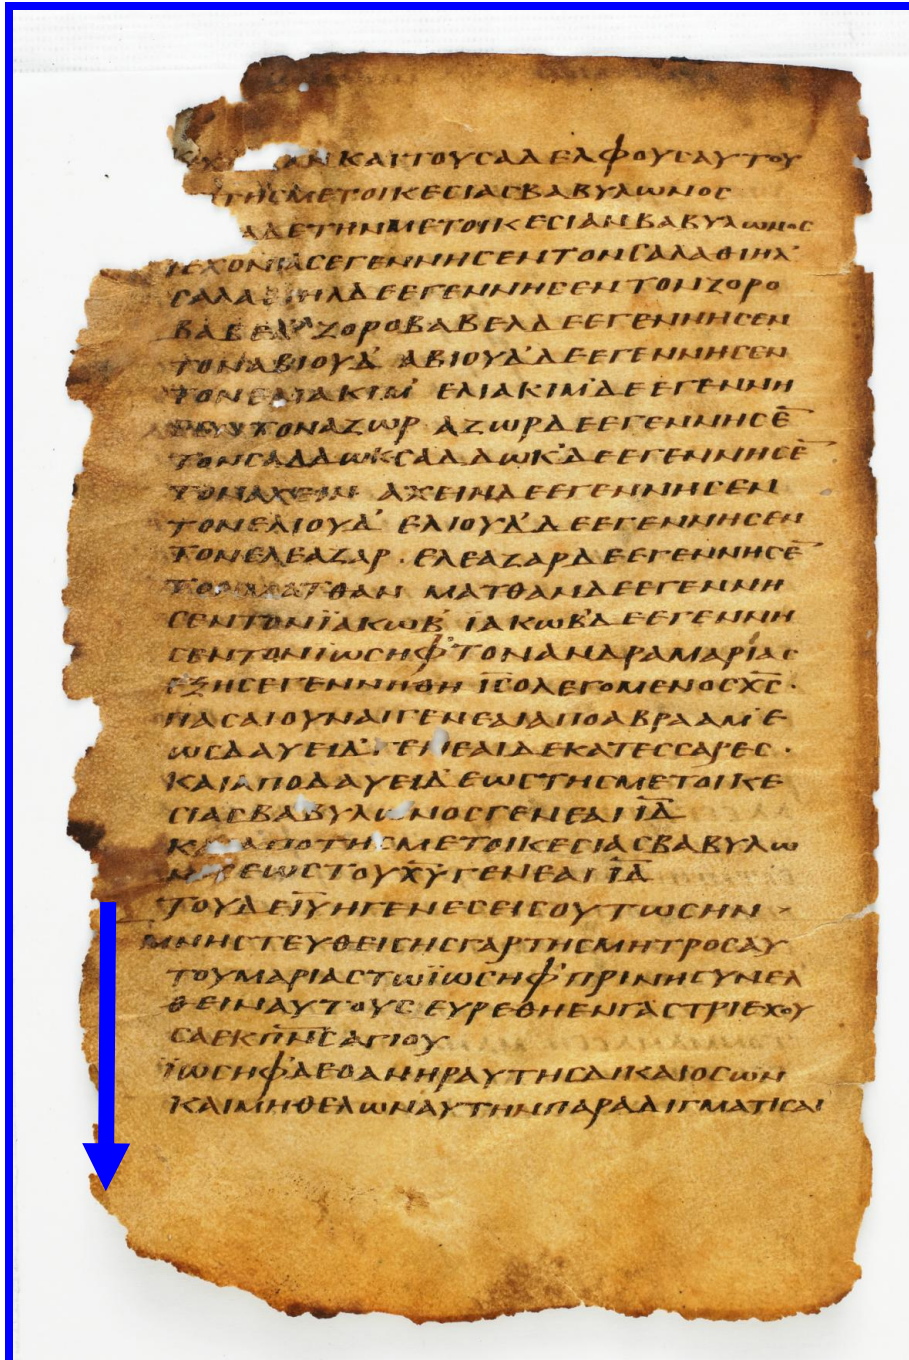 ΑΝΚΑΙΤΟΥΣΑΔΕΛΦΟΥΣΑΥΤΟΥ
ΤΗΣΜΕΤΟΙΚΕΣΙΑΣΒΑΒΥΛΩΝΟΣ
ΔΕΤΗΝΜΕΤΟΙΚΕΣΙΑΝΒΑΒΥΛΩΝΟΣ
ΙΕΧΟΝΙΑΣΕΓΕΝΝΗΣΕΝΤΟΝΣΑΛΑΘΙΗΛ
ΣΑΛΑΘΙΗΛΔΕΕΓΕΝΝΗΣΕΝΤΟΝΖΟΡΟ
ΒΑΒΕΛ ΖΟΡΟΒΑΒΕΛΔΕΕΓΕΝΝΗΣΕΝ
ΤΟΝΑΒΙΟΥΔ ΑΒΙΟΥΔΔΕΕΓΕΝΝΗΣΕΝ
ΤΟΝΕΛΙΑΚΙΜ ΕΛΙΑΚΙΜΔΕΕΓΕΝΝΗ
ΣΕΝΤΟΝΑΖΩΡ ΑΖΩΡΔΕΕΓΕΝΝΗΣΕ̅
ΤΟΝΣΑΔΔΩΚΣΑΔΔΩΚΔΕΕΓΕΝΝΗΣΕ̅
ΤΟΝΑΧΕΙΝ ΑΧΕΙΝΔΕΕΓΕΝΝΗΣΕΝ
ΤΟΝΕΛΙΟΥΔ ΕΛΙΟΥΔΔΕΕΓΕΝΝΗΣΕΝ
ΤΟΝΕΛΕΑΖΑΡ · ΕΛΕΑΖΑΡΔΕΕΓΕΝΝΗΣΕ̅
ΤΟΝΜΑΤΘΑΝ ΜΑΤΘΑΝΔΕΕΓΕΝΝΗ
ΣΕΝΤΟΝΪΑΚΩΒ ΪΑΚΩΒΔΕΕΓΕΝΝΗ
ΣΕΝΤΟΝΪΩΣΗΦ ΤΟΝΑΝΔΡΑΜΑΡΙΑΣ
ΕΞΗΣΕΓΕΝΝΗΘΗ Ι̅Σ̅ΟΛΕΓΟΜΕΝΟΣΧ̅Σ̅ ·
ΠΑΣΑΙΟΥΝΑΙΓΕΝΕΑΙΑΠΟΑΒΡΑΑΜ Ε
ΩΣΔΑΥΕΙΔ ΓΕΝΕΑΙΔΕΚΑΤΕΣΣΑΡΕΣ ·
ΚΑΙΑΠΟΔΑΥΕΙΔ ΕΩΣΤΗΣΜΕΤΟΙΚΕ
ΣΙΑΣΒΑΒΥΛΩΝΟΣΓΕΝΕΑΙΙ̅Δ̅
ΚΑΙΑΠΟΤΗΣΜΕΤΟΙΚΕΣΙΑΣΒΑΒΥΛΩ
ΝΟΣΕΩΣΤΟΥΧ̅Υ̅ ΓΕΝΕΑΙΙ̅Δ̅
ΤΟΥΔΕΙ̅Υ̅ΗΓΕΝΕΣΕΙΣΟΥΤΩΣΗΝ
ΜΝΗΣΤΕΥΘΕΙΣΗΣΓΑΡΤΗΣΜΗΤΡΟΣΑΥ
ΤΟΥΜΑΡΙΑΣΤΩΪΩΣΗΦ ΠΡΙΝΗΣΥΝΕΛ
ΘΕΙΝΑΥΤΟΥΣ ΕΥΡΕΘΗΕΝΓΑΣΤΡΙΕΧΟΥ
ΣΑΕΚΠ̅Ν̅Σ̅ ΑΓΙΟΥ
ΪΩΣΗΦΔΕΟΑΝΗΡΑΥΤΗΣΔΙΚΑΙΟΣΩΝ
ΚΑΙΜΗΘΕΛΩΝΑΥΤΗΝΠΑΡΑΔΙΓΜΑΤΙΣΑΙ